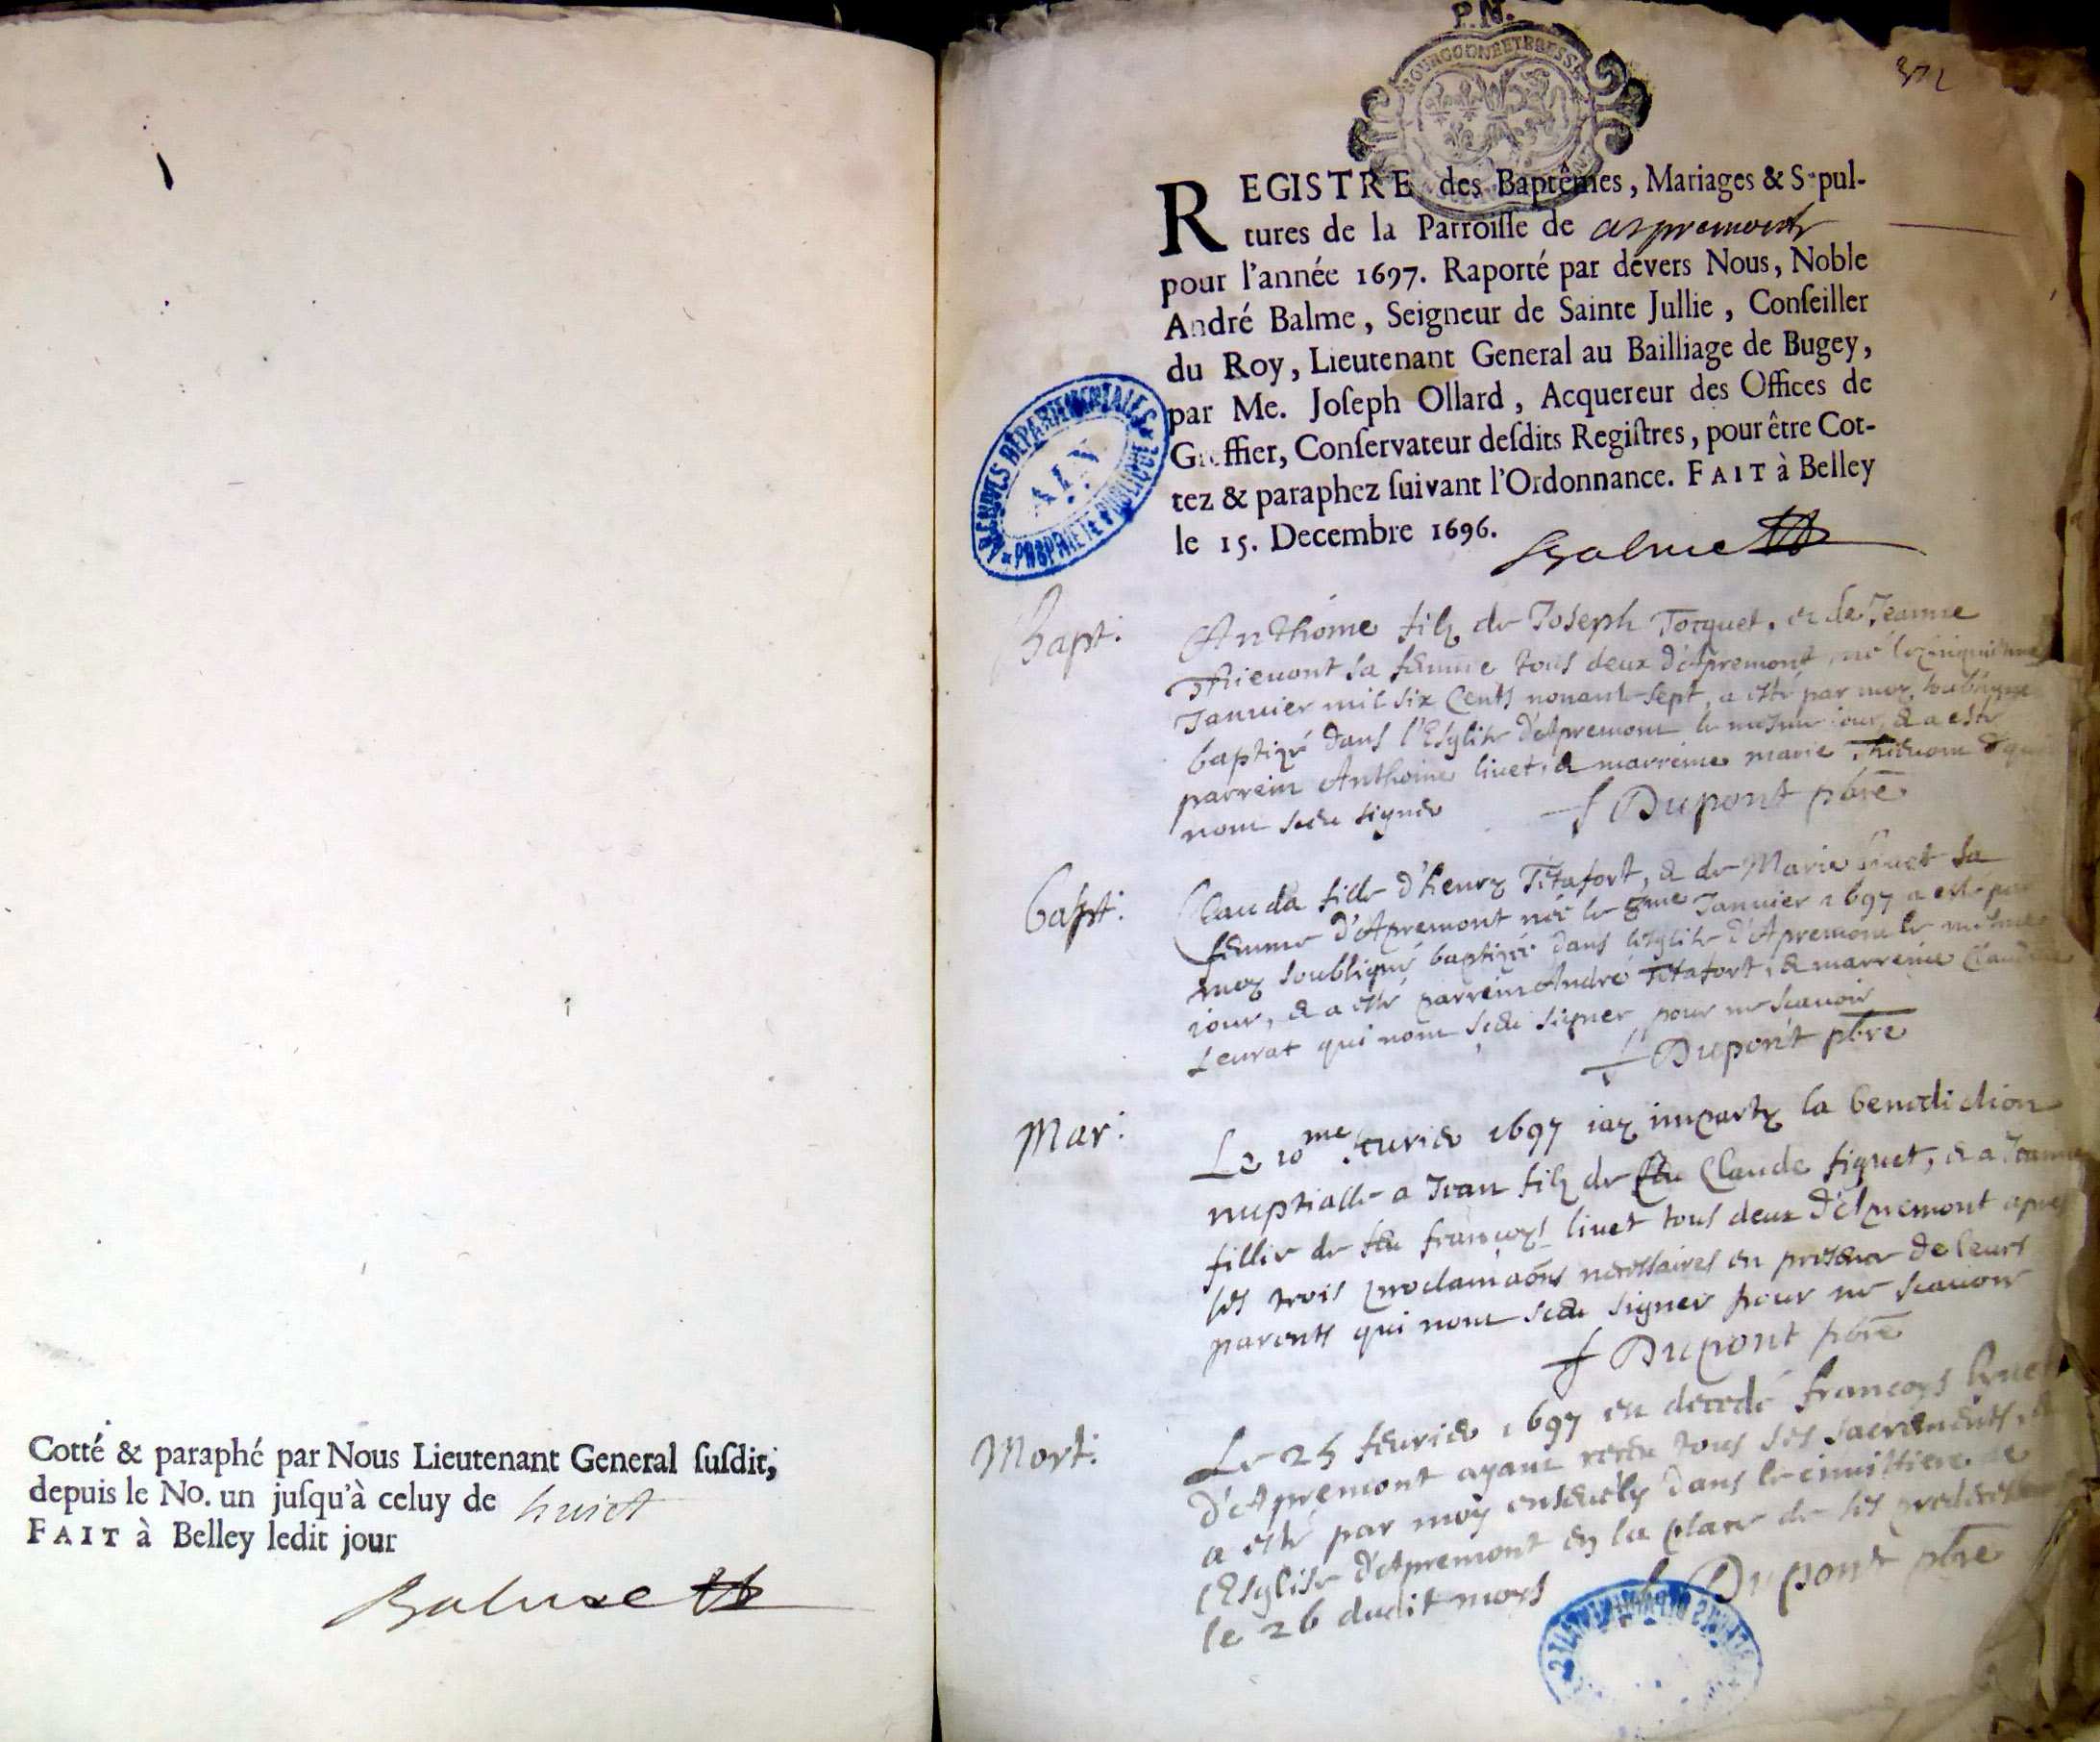 Cotté & paraphé par Nous Lieutenant General ſuſdit,
depuis le No. un juſqu'à celuy de huict
FAIT à Belley ledit jour
Balme
P.N.
BOURGOGNE ET BRESSE
REGISTRE des Baptêmes, Mariages & Sepul-
tures de la Parroiſſe de aspremont
pour l'année 1697. Raporté par devers Nous, Noble
André Balme, Seigneur de Sainte Jullie, Conſeiller
du Roy, Lieutenant General au Bailliage de Bugey,
par Me. Joſeph Ollard, Acquereur des Offices de
Greffier, Conſervateur deſdits Regiſtres, pour être Cot-
tez & paraphez ſuivant l'Ordonnance. FAIT à Belley
le 15. Decembre 1696.
Balme
ARCHIVES DÉPARTEMENTALES
AIN
PROPRIÉTÉ PUBLIQUE
Bapt:
Anthoine filz de Joseph Tocquet, et de Jeanne
Thieuont sa femme tous deux d'Apremont, né le cinquieme
Januier mil six Cents nonante sept, a esté par moy soubsigné
baptizé dans l'Esglise d'Apremont le mesme iour, & a esté
parrein Anthoine liuet, & marreine marie Thieuont
nont sceu signer
f Dupont pbre
Bapt:
Clauda fille d'henry Titafort, & de Marie liuet sa
femme d'Apremont née le Januier 1697 a esté par
moy soubsigné baptizée dans l'esglise d'Apremont le mesme
iour, & a esté parrein André Titafort, & marreine
Leurat qui nont sceu signer pour ne scauoir
f Dupont pbre
Mar:
Le 10me feurier 1697 iay imparty la benediction
nuptialle a Jean filz de feu Claude figuet, & a Jeanne
fillie de feu françoys liuet tous deux d'Apremont apres
les trois proclamaōns necessaires en presence de leurs
parents qui nont sceu signer pour ne scauoir
f Dupont pbre
Mort:
Le 25 feurier 1697 est decedé françoys liuet
d'Apremont ayant receu tous ses sacrements, &
a esté par moy enseuely dans le cimistiere de
l'Esglise d'Apremont en la place de ses predecesseurs
le 26 dudit moys
f Dupont pbre